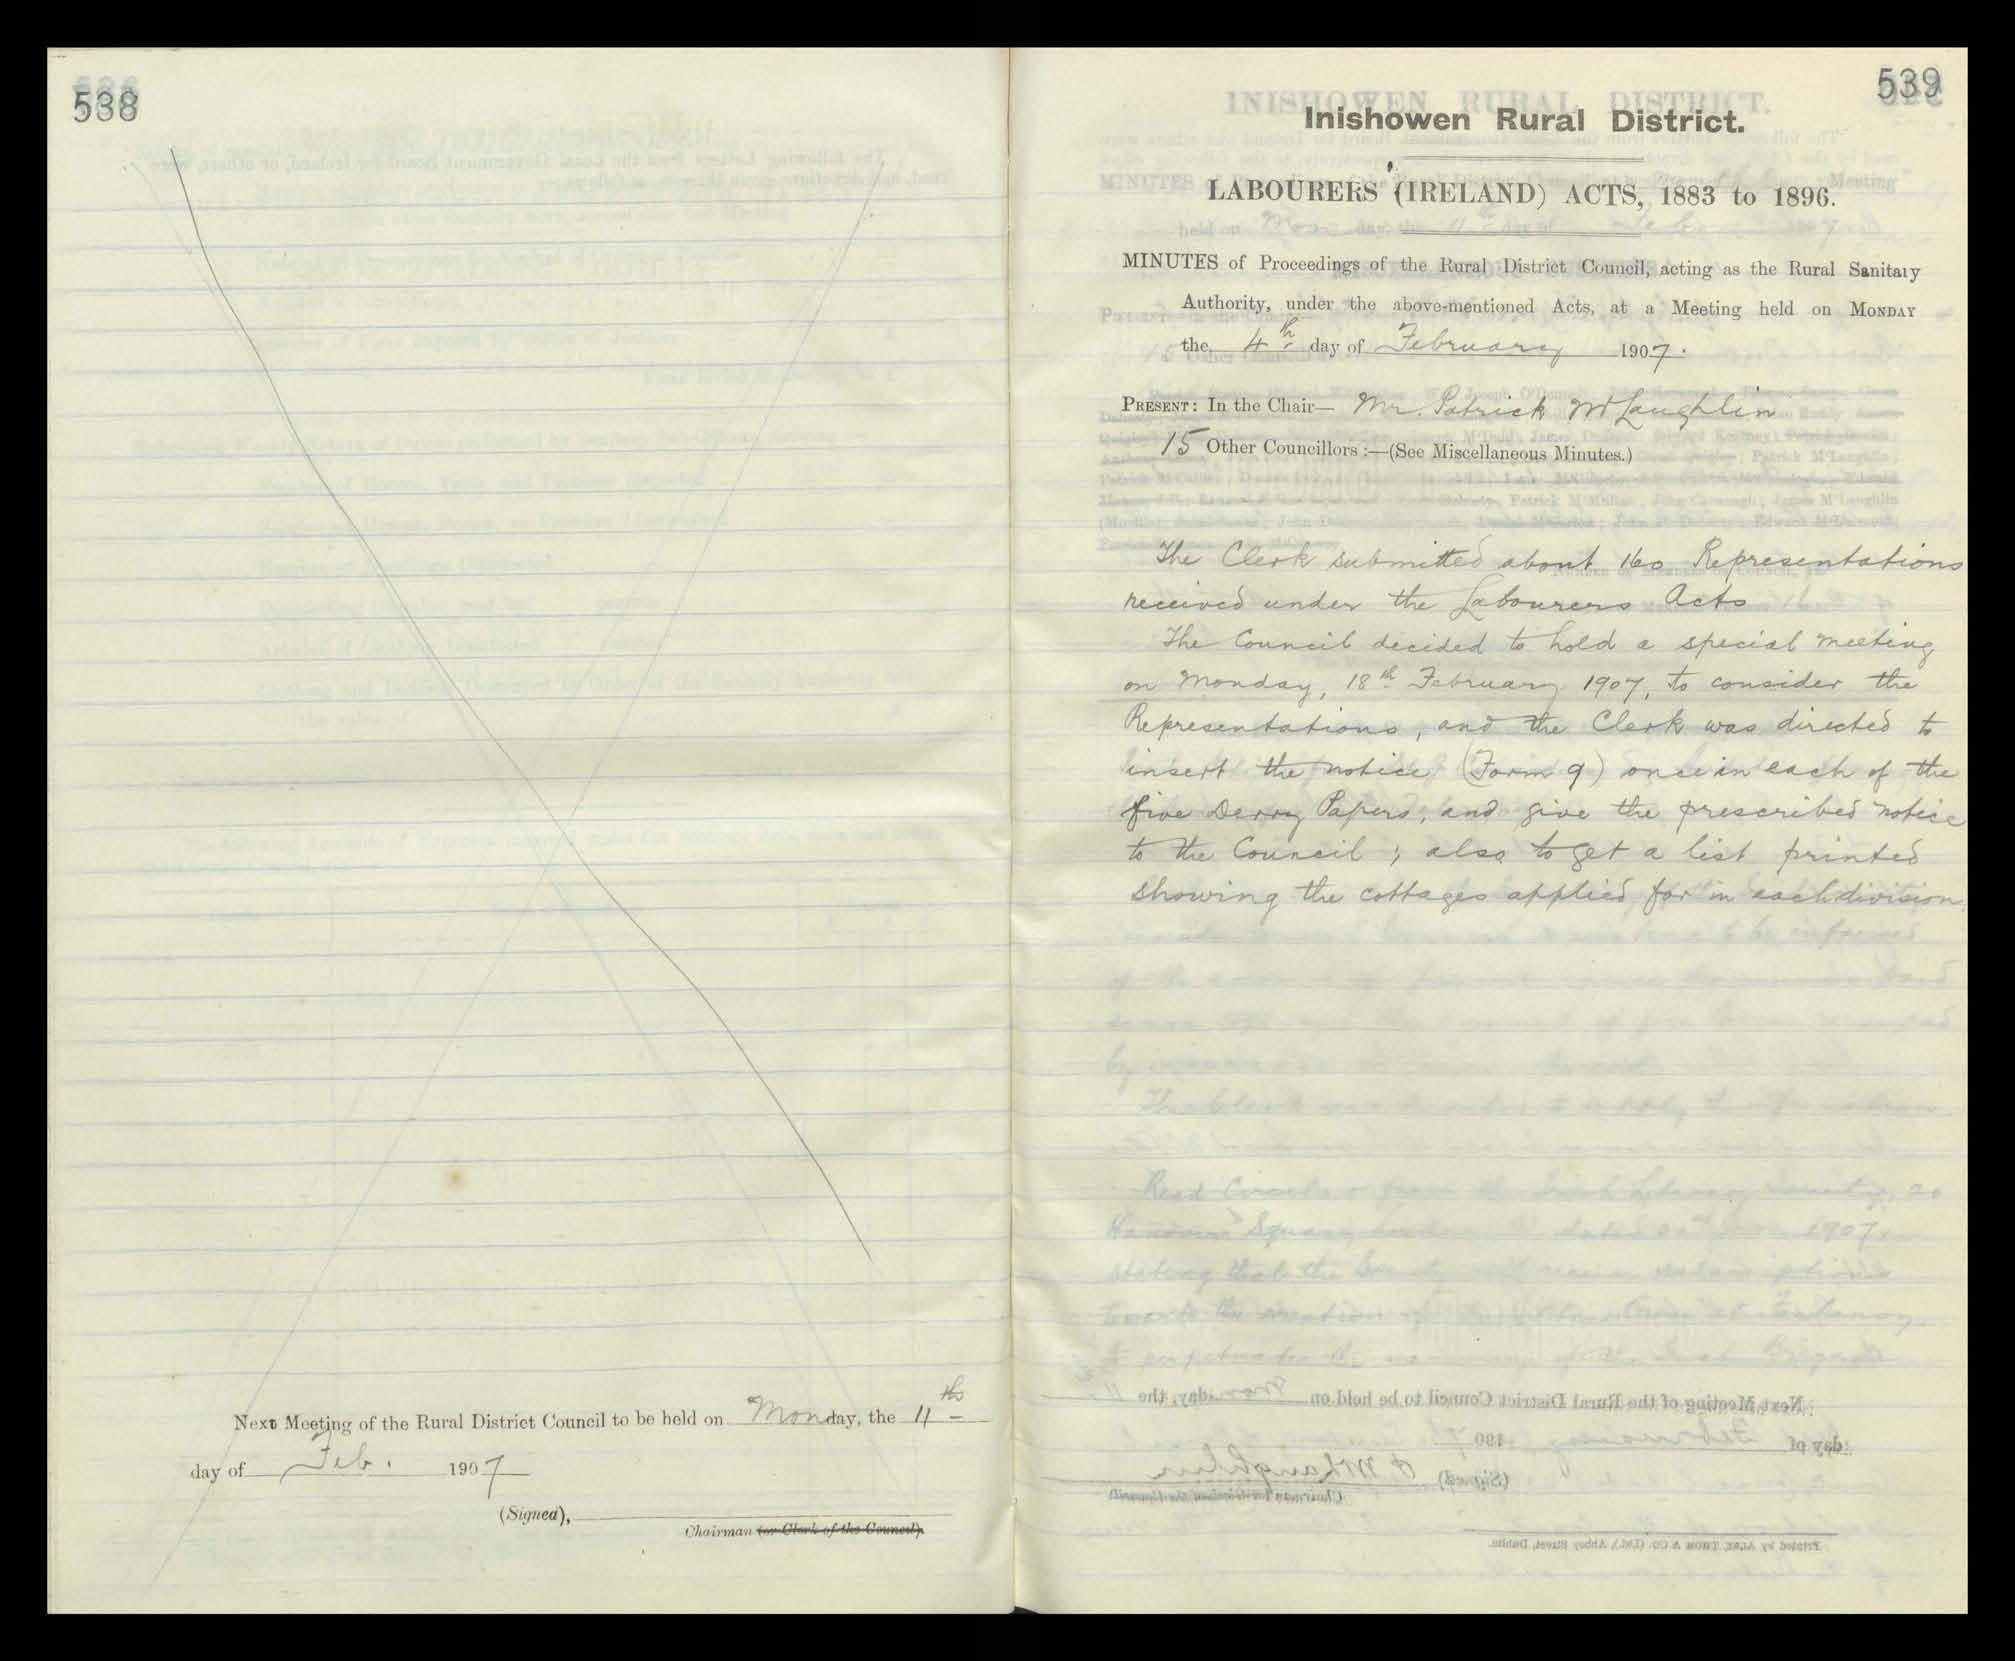 538
Next Meeting of the Rural District Council to be held on Monday, the 11th
day of Feb. 1907
(Signed),
Chairman (or Clerk of the Council).
539
Inishowen Rural District.
LABOURERS (IRELAND) ACTS, 1883 to 1896.
MINUTES of Proceedings of the Rural District Council, acting as the Rural Sanitary
Authority, under the above-mentioned Acts, at a Meeting held on MONDAY
the 4th day of February 1907.
PRESENT: In the Chair— Mr. Patrick McLaughlin
15 Other Councillors :—(See Miscellaneous Minutes.)
The Clerk submitted about 160 Representations
received under the Labourers Acts
The Council decided to hold a special meeting
on Monday, 18th February 1907, to consider the
Representations, and the Clerk was directed to
insert the notice (Form 9) once in each of the
five Derry Papers, and give the prescribed notice
to the Council ; also to get a list printed
showing the cottages applied for in each division